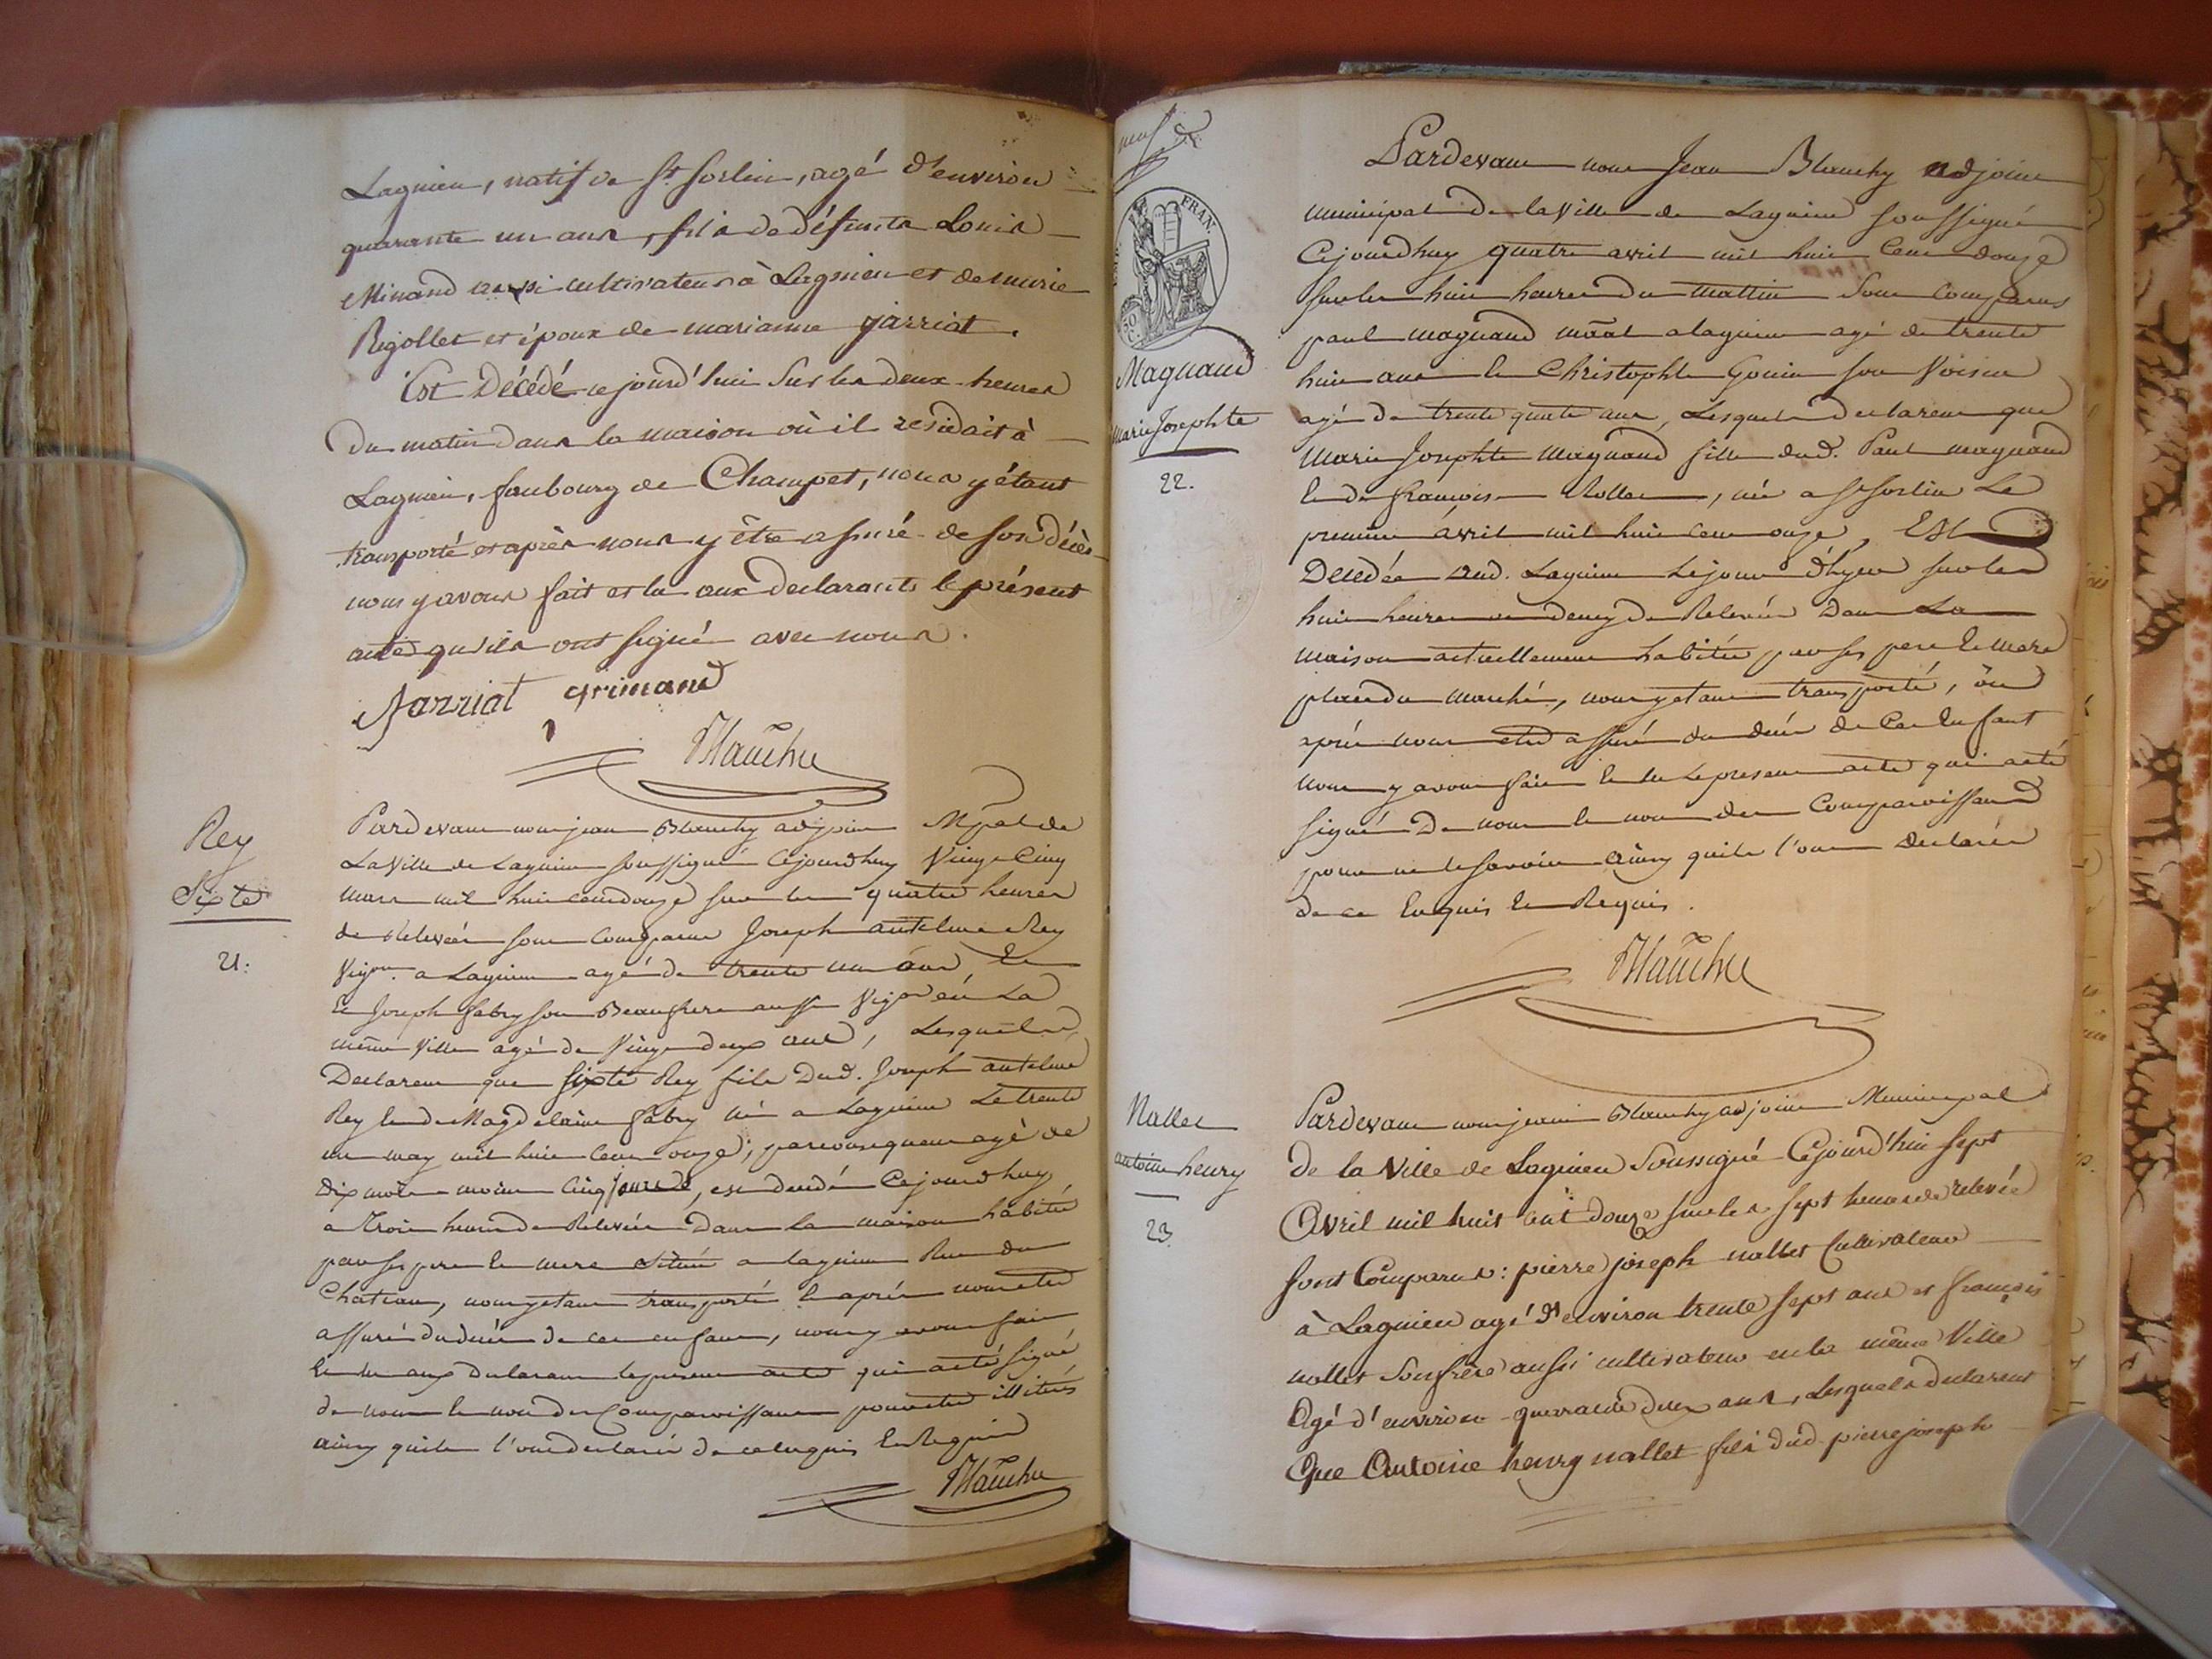 Lagnieu, natif de St. Sorlin, agé d'environ
quarante un ans, fils de défunts Louis
Minand aussi cultivateur à Lagnieu et de marie
Rigollet et époux de marianne Jarriat.
Est Décédé ce jourd'hui Sur les deux heures
du matin dans la maison où il residait à
Lagnieu, faubourg de Champet, nous y étant
transporté et après nous y être assuré de son décès
nous y avons fait et lu aux declarants le présent
acte qu'ils ont signé avec nous.
Jarriat grimand
Blanchy
Rey
Sixte
21.
Pardevant nous jean Blanchy adjoint Mpal de
La Ville de Lagnieu soussigné Cejourdhuy Vingt Cinq
mars mil huit cent douze sur les quatre heures
de Relevée sont Comparus Joseph antelme Rey
Vigon. a Lagnieu agé de trente un ans, Et
Et Joseph fabry son Beaufrere aussi Vigon en La
même Ville agé de Vingt deux ans, Lesquels
Declarent que sixte Rey fils Dud. Joseph antelme
Rey Et de Magdelaine fabry né a Lagnieu Le trente
un may mil huit Cent onze, par consequent agé de
dix mois moins Cinq jours, est decedé Cejourdhuy
a Trois heures de Relevée Dans la maison habitée
par ses pere Et mere située a lagnieu Rue du
Chateau, nous y etant transporté Et après nous etre
assuré du decés de cet enfant, nous y avons fait
Et lu aux declarans le present acte qui a eté signé
de nous Et non des Comparoissans pour etre illitérés
ainsy quils l'ont declaré de ce enquis Et Requis
Blanchy
neuf
EMP. FRAN.
50 C.
Magnand
Marie Josephte
22.
Pardevant nous Jean Blanchy adjoint
municipal de la Ville de Lagnieu soussigné
Cejourdhuy quatre avril mil huit Cent douze
sur les huit heures du mattin Sont Comparus
paul magnand mâal a lagnieu agé de trente
huit ans Et Christophle Gonin son Voisin
agé de trente quatre ans, Lesquels declarent que
Marie Josephte Magnand fille dud. Paul magnand
Et de françoise Rollet, née a St Sorlin Le
premier avril mil huit cent onze, Est
Decedée aud. Lagnieu Le jour d'hyer sur les
huit heures et demy de Relevée Dans La
maison actuellement habitée par ses pere Et mere
place du marché, nous y etant transporté, où
après nous etre assuré du decés de Cet Enfant
nous y avons fait Et lu Le present acte qui a eté
signé De nous Et non des Comparoissans
pour ne le savoir ainsy quils l'ont Declaré
de ce Enquis Et Requis.
Blanchy
Nallet
antoine henry
23.
Pardevant nous jean Blanchy adjoint Municipal
de la Ville de Lagnieu Soussigné Cejourd'hui Sept
Avril mil huit cent douze sur les sept heures de relevée
sont Comparus: pierre joseph nallet Cultivateur
à Lagnieu agé d'environ trente sept ans et françois
nallet Son frère aussi cultivateur en la même Ville
Agé d'environ quarante deux ans, Lesquels declarent
Que Antoine henry nallet fils dud. pierre joseph